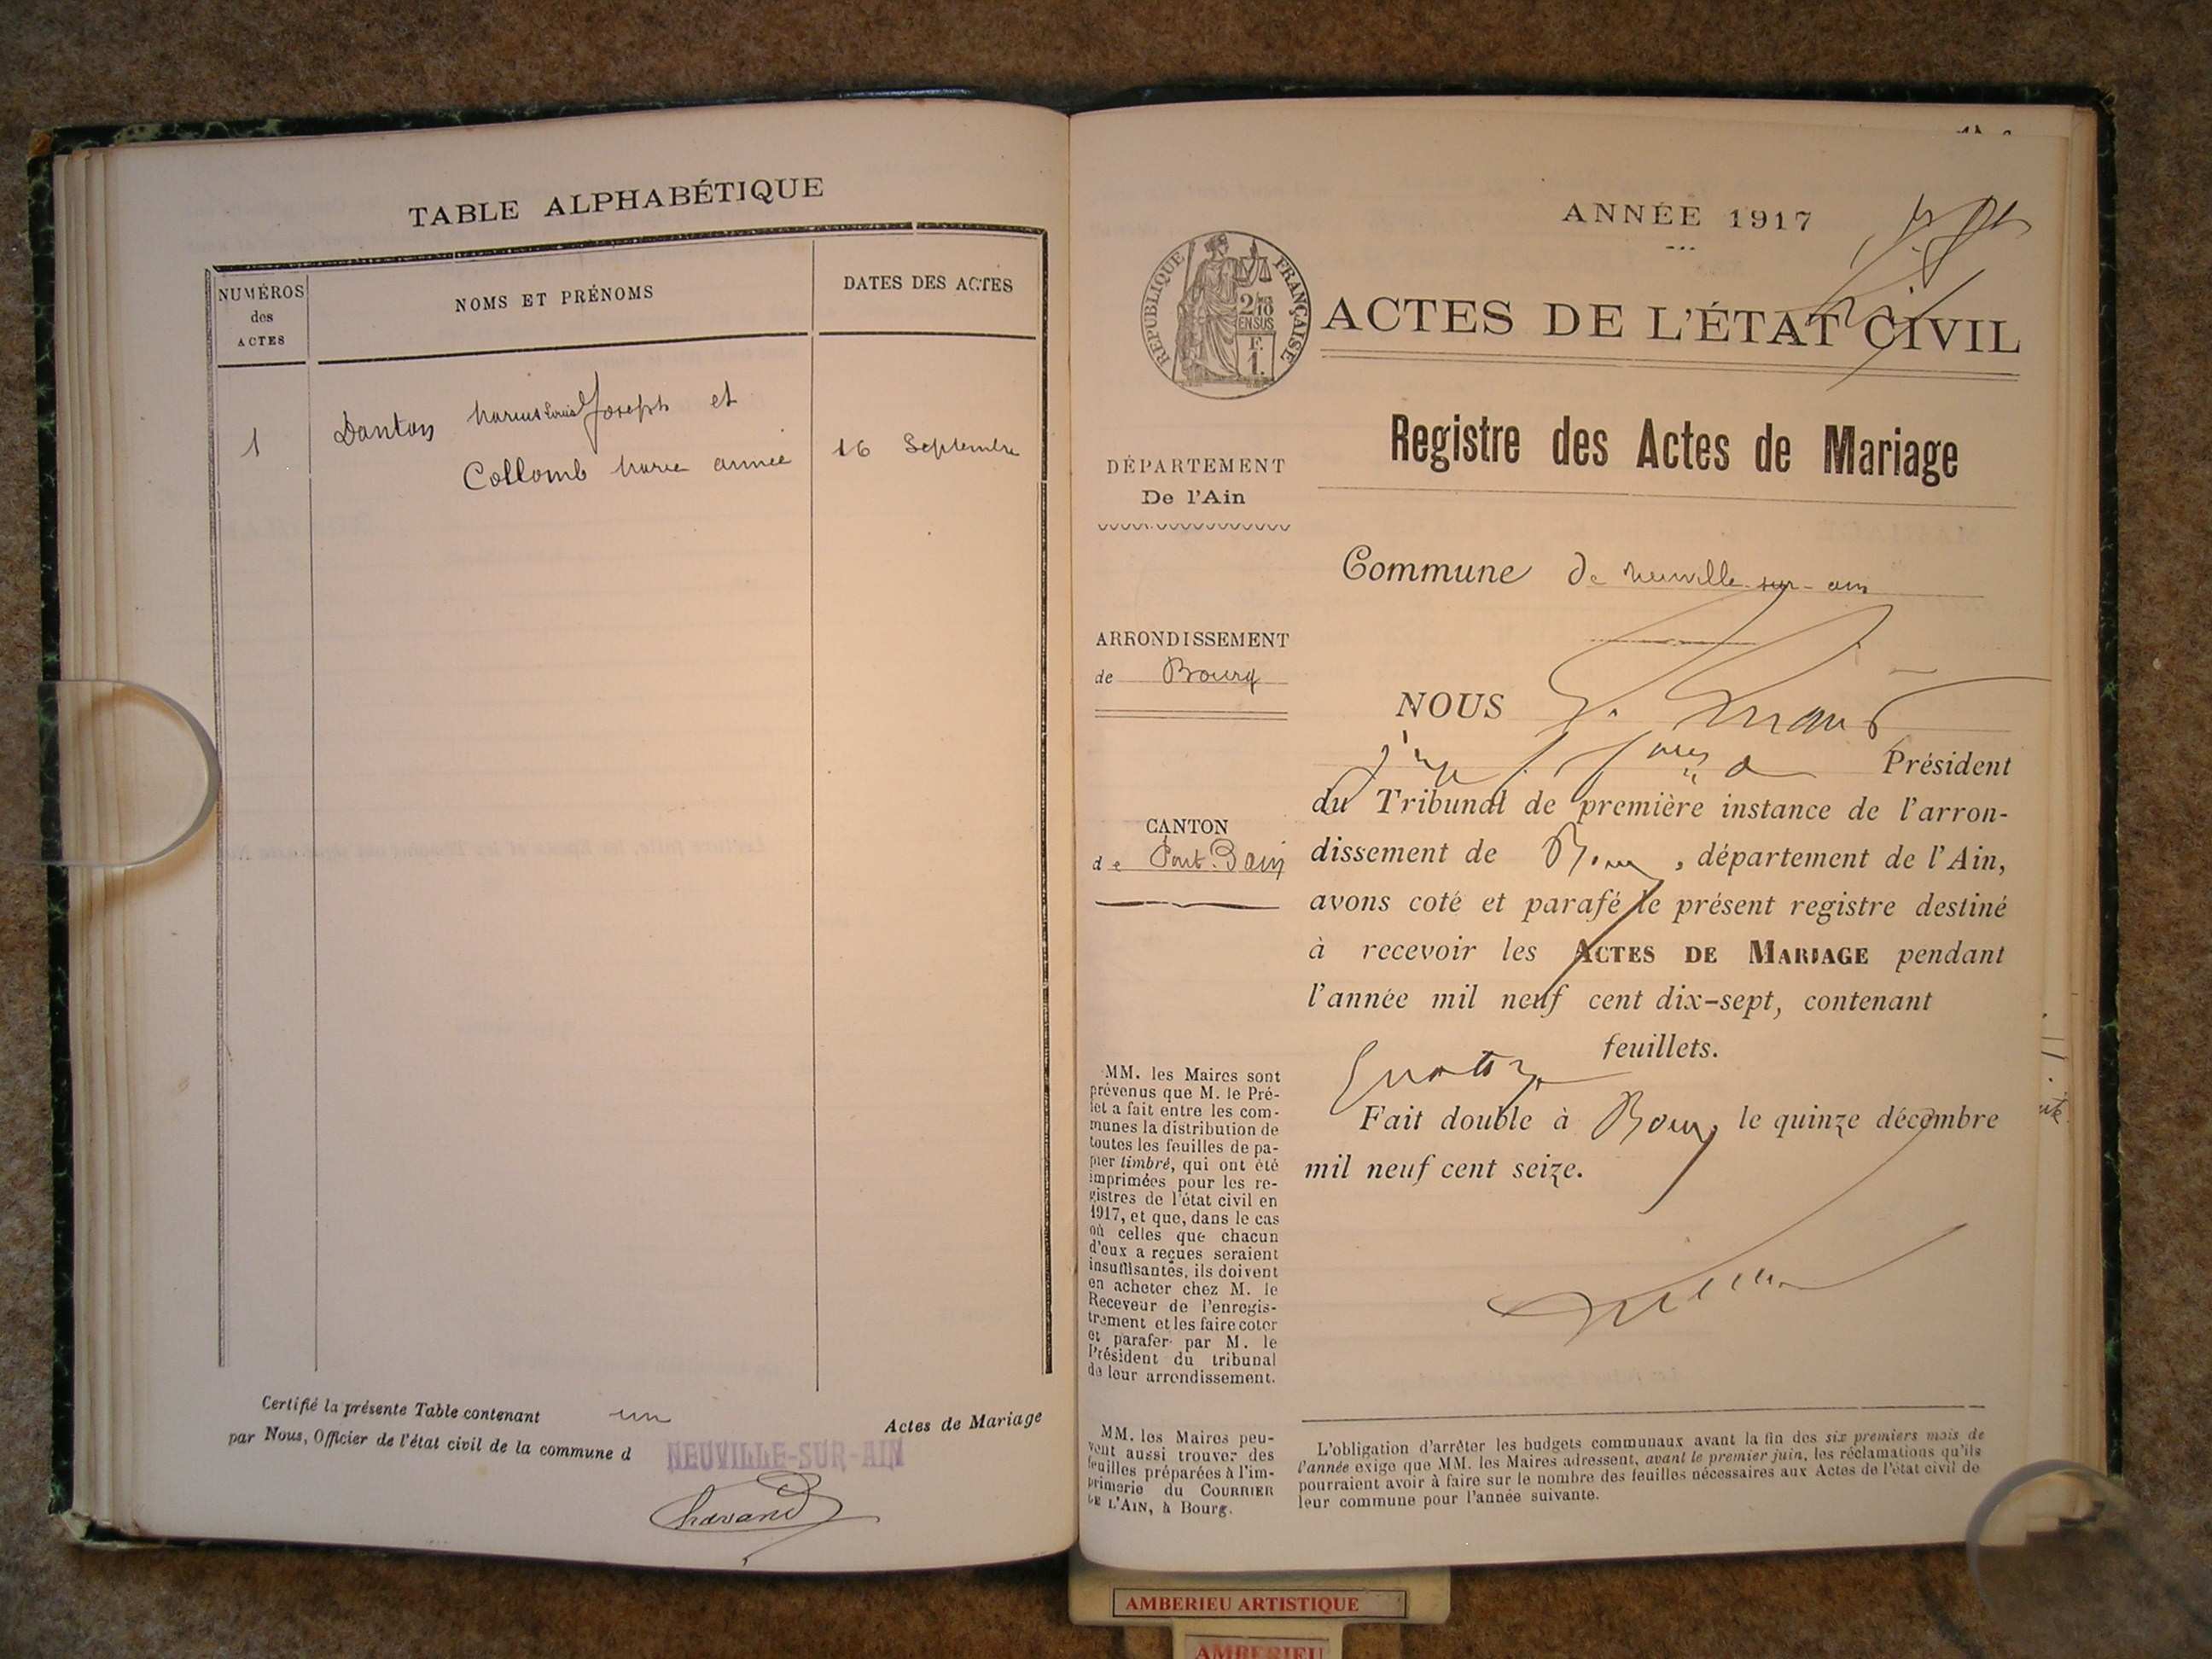 TABLE ALPHABÉTIQUE
NUMÉROS
des
ACTES
NOMS ET PRÉNOMS
DATES DES ACTES
1
Danton Marius Louis Joseph et
Collomb Marie
16 Septembre
Certifié la présente Table contenant un Actes de Mariage
par Nous, Officier de l'état civil de la commune d NEUVILLE-SUR-AIN
ANNÉE 1917
RÉPUBLIQUE FRANÇAISE
ACTES DE L'ÉTAT CIVIL
Registre des Actes de Mariage
DÉPARTEMENT
De l'Ain
Commune de Neuville-sur-ain
ARRONDISSEMENT
de Bourg
CANTON
de Pont-Dain
NOUS
Président
du Tribunal de première instance de l'arron-
dissement de Bourg, département de l'Ain,
avons coté et parafé le présent registre destiné
à recevoir les ACTES DE MARIAGE pendant
l'année mil neuf cent dix-sept, contenant
feuillets.
Fait double à Bourg, le quinze décembre
mil neuf cent seize.
MM. les Maires sont
prévenus que M. le Pré-
fet a fait entre les com-
munes la distribution de
toutes les feuilles de pa-
pier timbré, qui ont été
imprimées pour les re-
gistres de l'état civil en
1917, et que, dans le cas
où celles que chacun
d'eux a reçues seraient
insuffisantes, ils doivent
en acheter chez M. le
Receveur de l'enregis-
trement et les faire coter
et parafer par M. le
Président du tribunal
de leur arrondissement.
MM. les Maires peu-
vent aussi trouver des
feuilles préparées à l'im-
primerie du COURRIER
DE L'AIN, à Bourg.
L'obligation d'arrêter les budgets communaux avant la fin des six premiers mois de
l'année exige que MM. les Maires adressent, avant le premier juin, les réclamations qu'ils
pourraient avoir à faire sur le nombre des feuilles nécessaires aux Actes de l'état civil de
leur commune pour l'année suivante.
AMBERIEU ARTISTIQUE
AMBERIEU